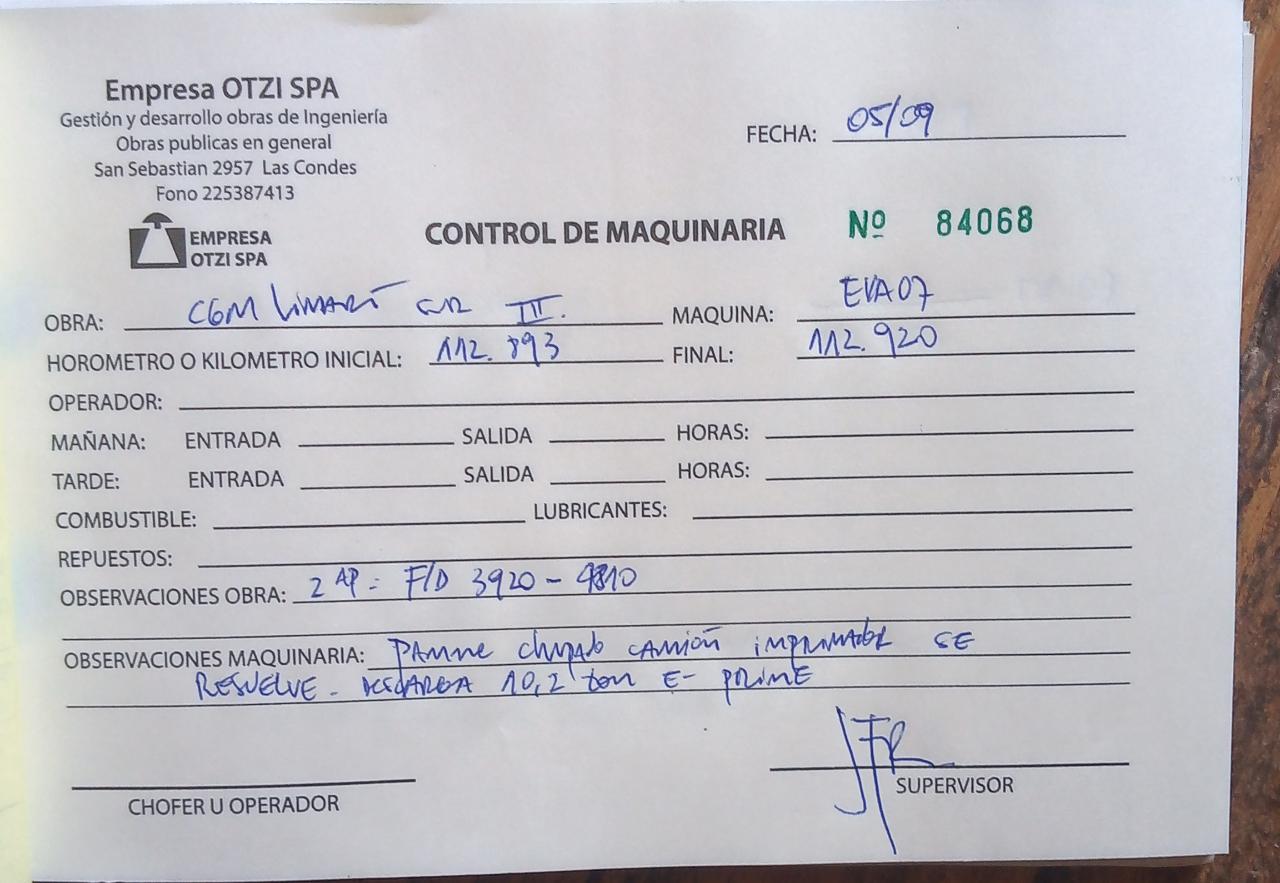 Empresa OTZI SPA
Gestión y desarrollo obras de Ingeniería
Obras publicas en general
San Sebastian 2957 Las Condes
Fono 225387413
EMPRESA
OTZI SPA
FECHA: 05/09
CONTROL DE MAQUINARIA Nº 84068
OBRA: CGM LIMARÍ III. MAQUINA: EVA07
HOROMETRO O KILOMETRO INICIAL: 112.893 FINAL: 112.920
OPERADOR:
MAÑANA: ENTRADA SALIDA HORAS:
TARDE: ENTRADA SALIDA HORAS:
COMBUSTIBLE: LUBRICANTES:
REPUESTOS:
OBSERVACIONES OBRA: 2 AP = F/D 3920 - 4810
OBSERVACIONES MAQUINARIA: PANNE camión imprimador SE
RESUELVE - DESCARGA 10,2 ton E- PRIME
JFR
CHOFER U OPERADOR SUPERVISOR